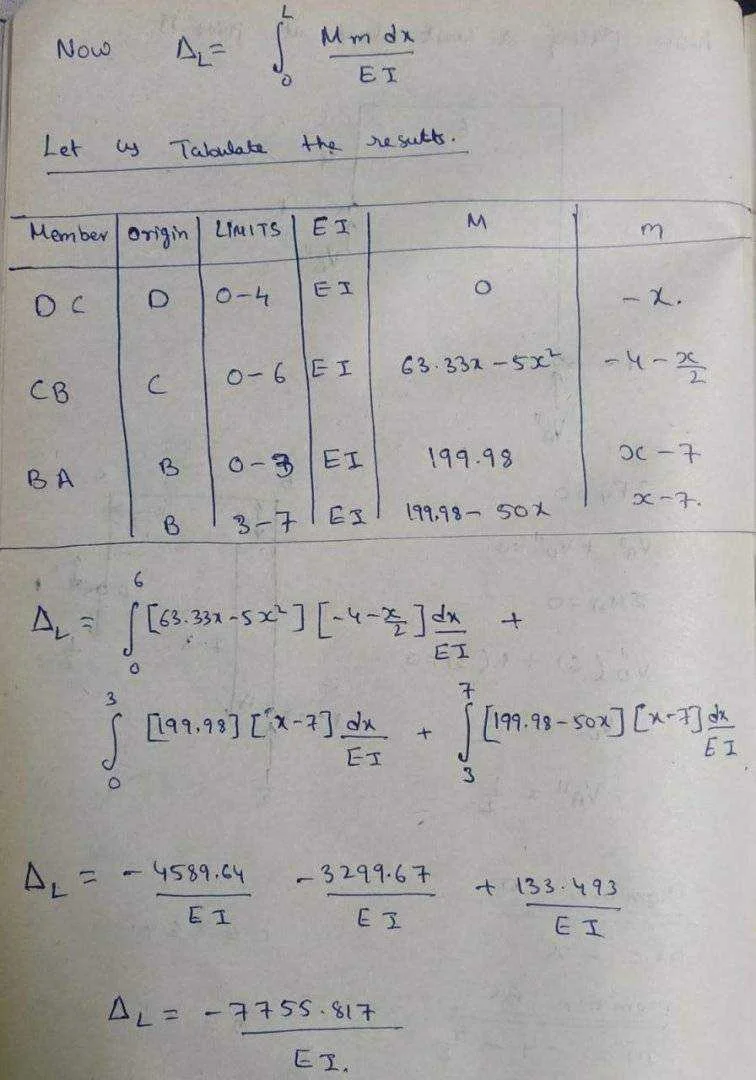 Now Δ_L = ∫₀ᴸ M m dx / EI
Let us Tabulate the results.
Member | Origin | LIMITS | EI | M | m
DC | D | 0-4 | EI | 0 | -x.
CB | C | 0-6 | EI | 63.33x - 5x² | -4 - x/2
BA | B | 0-3 | EI | 199.98 | x-7
B | 3-7 | EI | 199.98 - 50x | x-7.
Δ_L = ∫₀⁶ [63.33x - 5x²] [-4 - x/2] dx/EI +
∫₀³ [199.98] [x-7] dx/EI + ∫₃⁷ [199.98 - 50x] [x-7] dx/EI
Δ_L = - 4589.64/EI - 3299.67/EI + 133.493/EI
Δ_L = - 7755.817/EI.